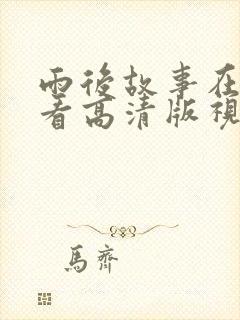 雨後故事在
看高清版視
馬齊